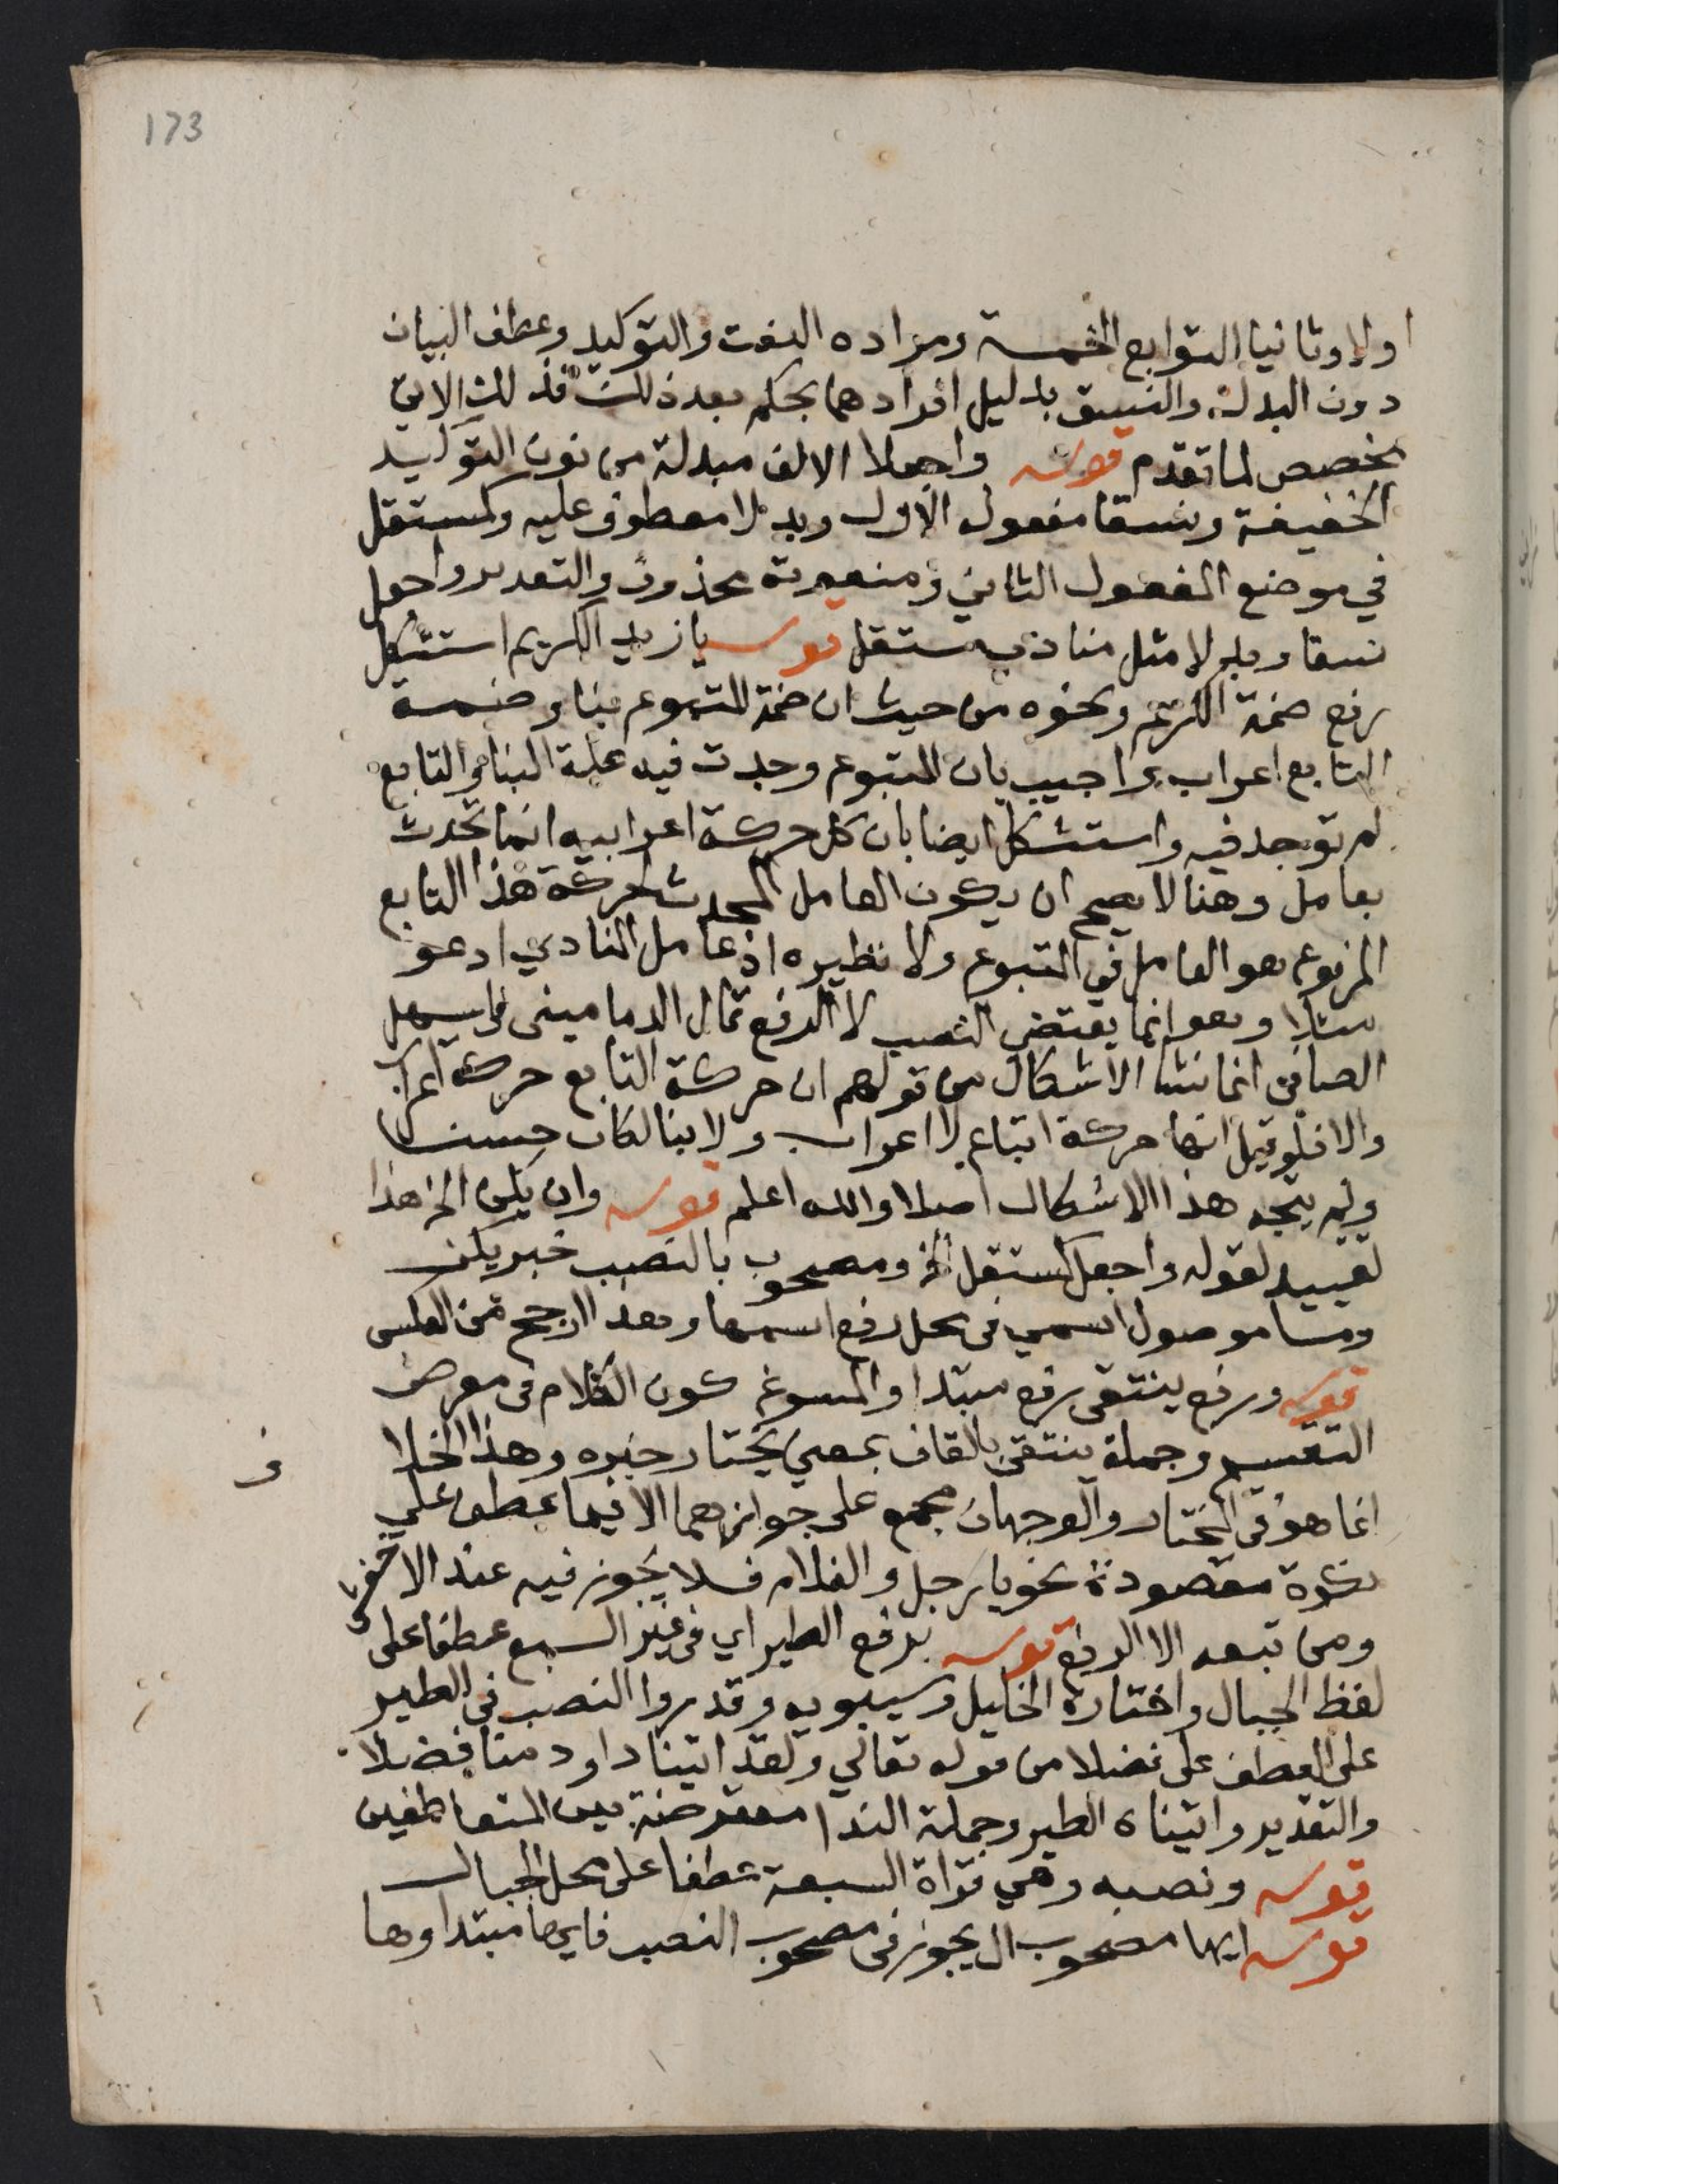 173
اولا وثانيا التوابع الخمسة ومراده النعت والتوكيد وعطف البيان
دون البدل والنسق بدليل افرادهما بحكم بعد ذلك فذلك الاتي
مخصص لما تقدم قوله واجعلا الالف مبدلة من نون التوكيد
الخفيفة ونسقا مفعول الاول وبدلا معطوف عليه وكمستقل
في موضع المفعول الثاني ومنعوته محذوف والتقدير واجعل
نسقا وبدلا مثل منادي مستقل قوله يا زيد الكريم استشكل
رفع ضمة الكريم ونحوه من حيث ان ضمة المتبوع بنا وضمة
التابع اعراب واجيب بان المتبوع وجدت فيه علة البنا والتابع
لم توجد فيه واستشكل ايضا بان كل حركة اعرابيه انما تحدث
بعامل وهنا لا يصح ان يكون العامل المحدث لحركة هذا التابع
المرفوع هو العامل في المتبوع ولا نظيره اذ عامل المنادي ادعو
مثلا وهو انما يقتضي النصب لا الرفع قال الدماميني في المنهل
الصافي انما نشا الاشكال من قولهم ان حركة التابع حركة اعراب
والا فلو قيل انها حركة اتباع لا اعراب ولا بنا لكان حسنا
ولم يتجه هذا الاشكال اصلا والله اعلم قوله وان يكن الخ هذا
تقييد لقوله واجعل كمستقل الخ ومصحوب بالنصب خبر يكن
وما موصول اسمي في محل رفع اسمها وهذا ارجح من العكس
قوله ورفع ينتقى رفع مبتدا والمسوغ كون الكلام في معرض
التقسيم وجملة ينتقى بالقاف بمعني يختار خبره وهذا الخلا
ف
انما هو في المختار والوجهان مجمع على جوازهما الا فيما عطف علي
نكرة مقصودة نحو يا رجل والغلام فلا يجوز فيه عند الاخفش
ومن تبعه الا الرفع قوله برفع الطير اي في غير السبع عطفا على
لفظ الجبال واختاره الخليل وسيبويه وقدروا النصب في الطير
على العطف على فضلا من قوله تعالي ولقد اتينا داود منا فضلا
والتقدير واتيناه الطير وجملة الندا معترضة بين المتعاطفين
قوله ونصبه وهي قراة السبعة عطفا على محل الجبال
قوله ايها مصحوب ال يجوز في مصحوب النصب فايها مبتدا وها